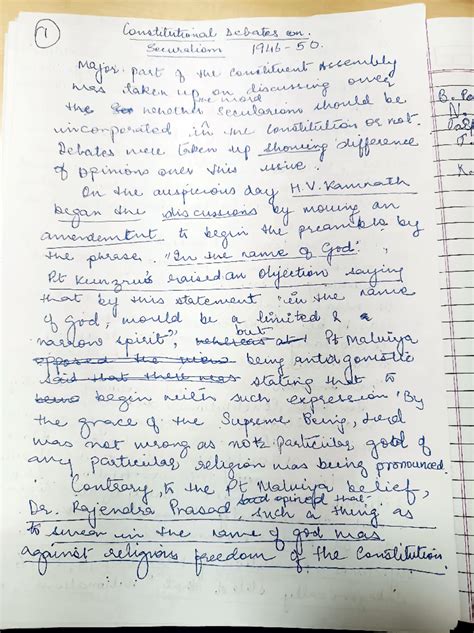 1
Constitutional Debates on
Secularism 1946-50.
Major part of the Constituent Assembly
was taken up on discussing over
the whether the word Secularism should be
incorporated in the Constitution or not.
Debates were taken up showing difference
of opinions over this issue.
On the auspicious day H.V. Kamnath
began the discussions by moving an
amendemtnt to begin the preamble by
the phrase. "In the name of God".
Pt Kunzru's raised an objection saying
that by this statement 'in the name
of God, would be a limited & a
narrow spirit", whereas at but Pt Malviya
opposed the view being antagonistic
said that there was stating that to
being begin with such expression 'By
the grace of the Supreme Being, Lord
was not wrong as not particular god of
any particular religion was being pronounced.
Contrary, to the Pt Malviya belief,
Dr. Rajendra Prasad said opined that such a thing as
to swear in the name of god was
against religious freedom of the Constitution.
B.
N.